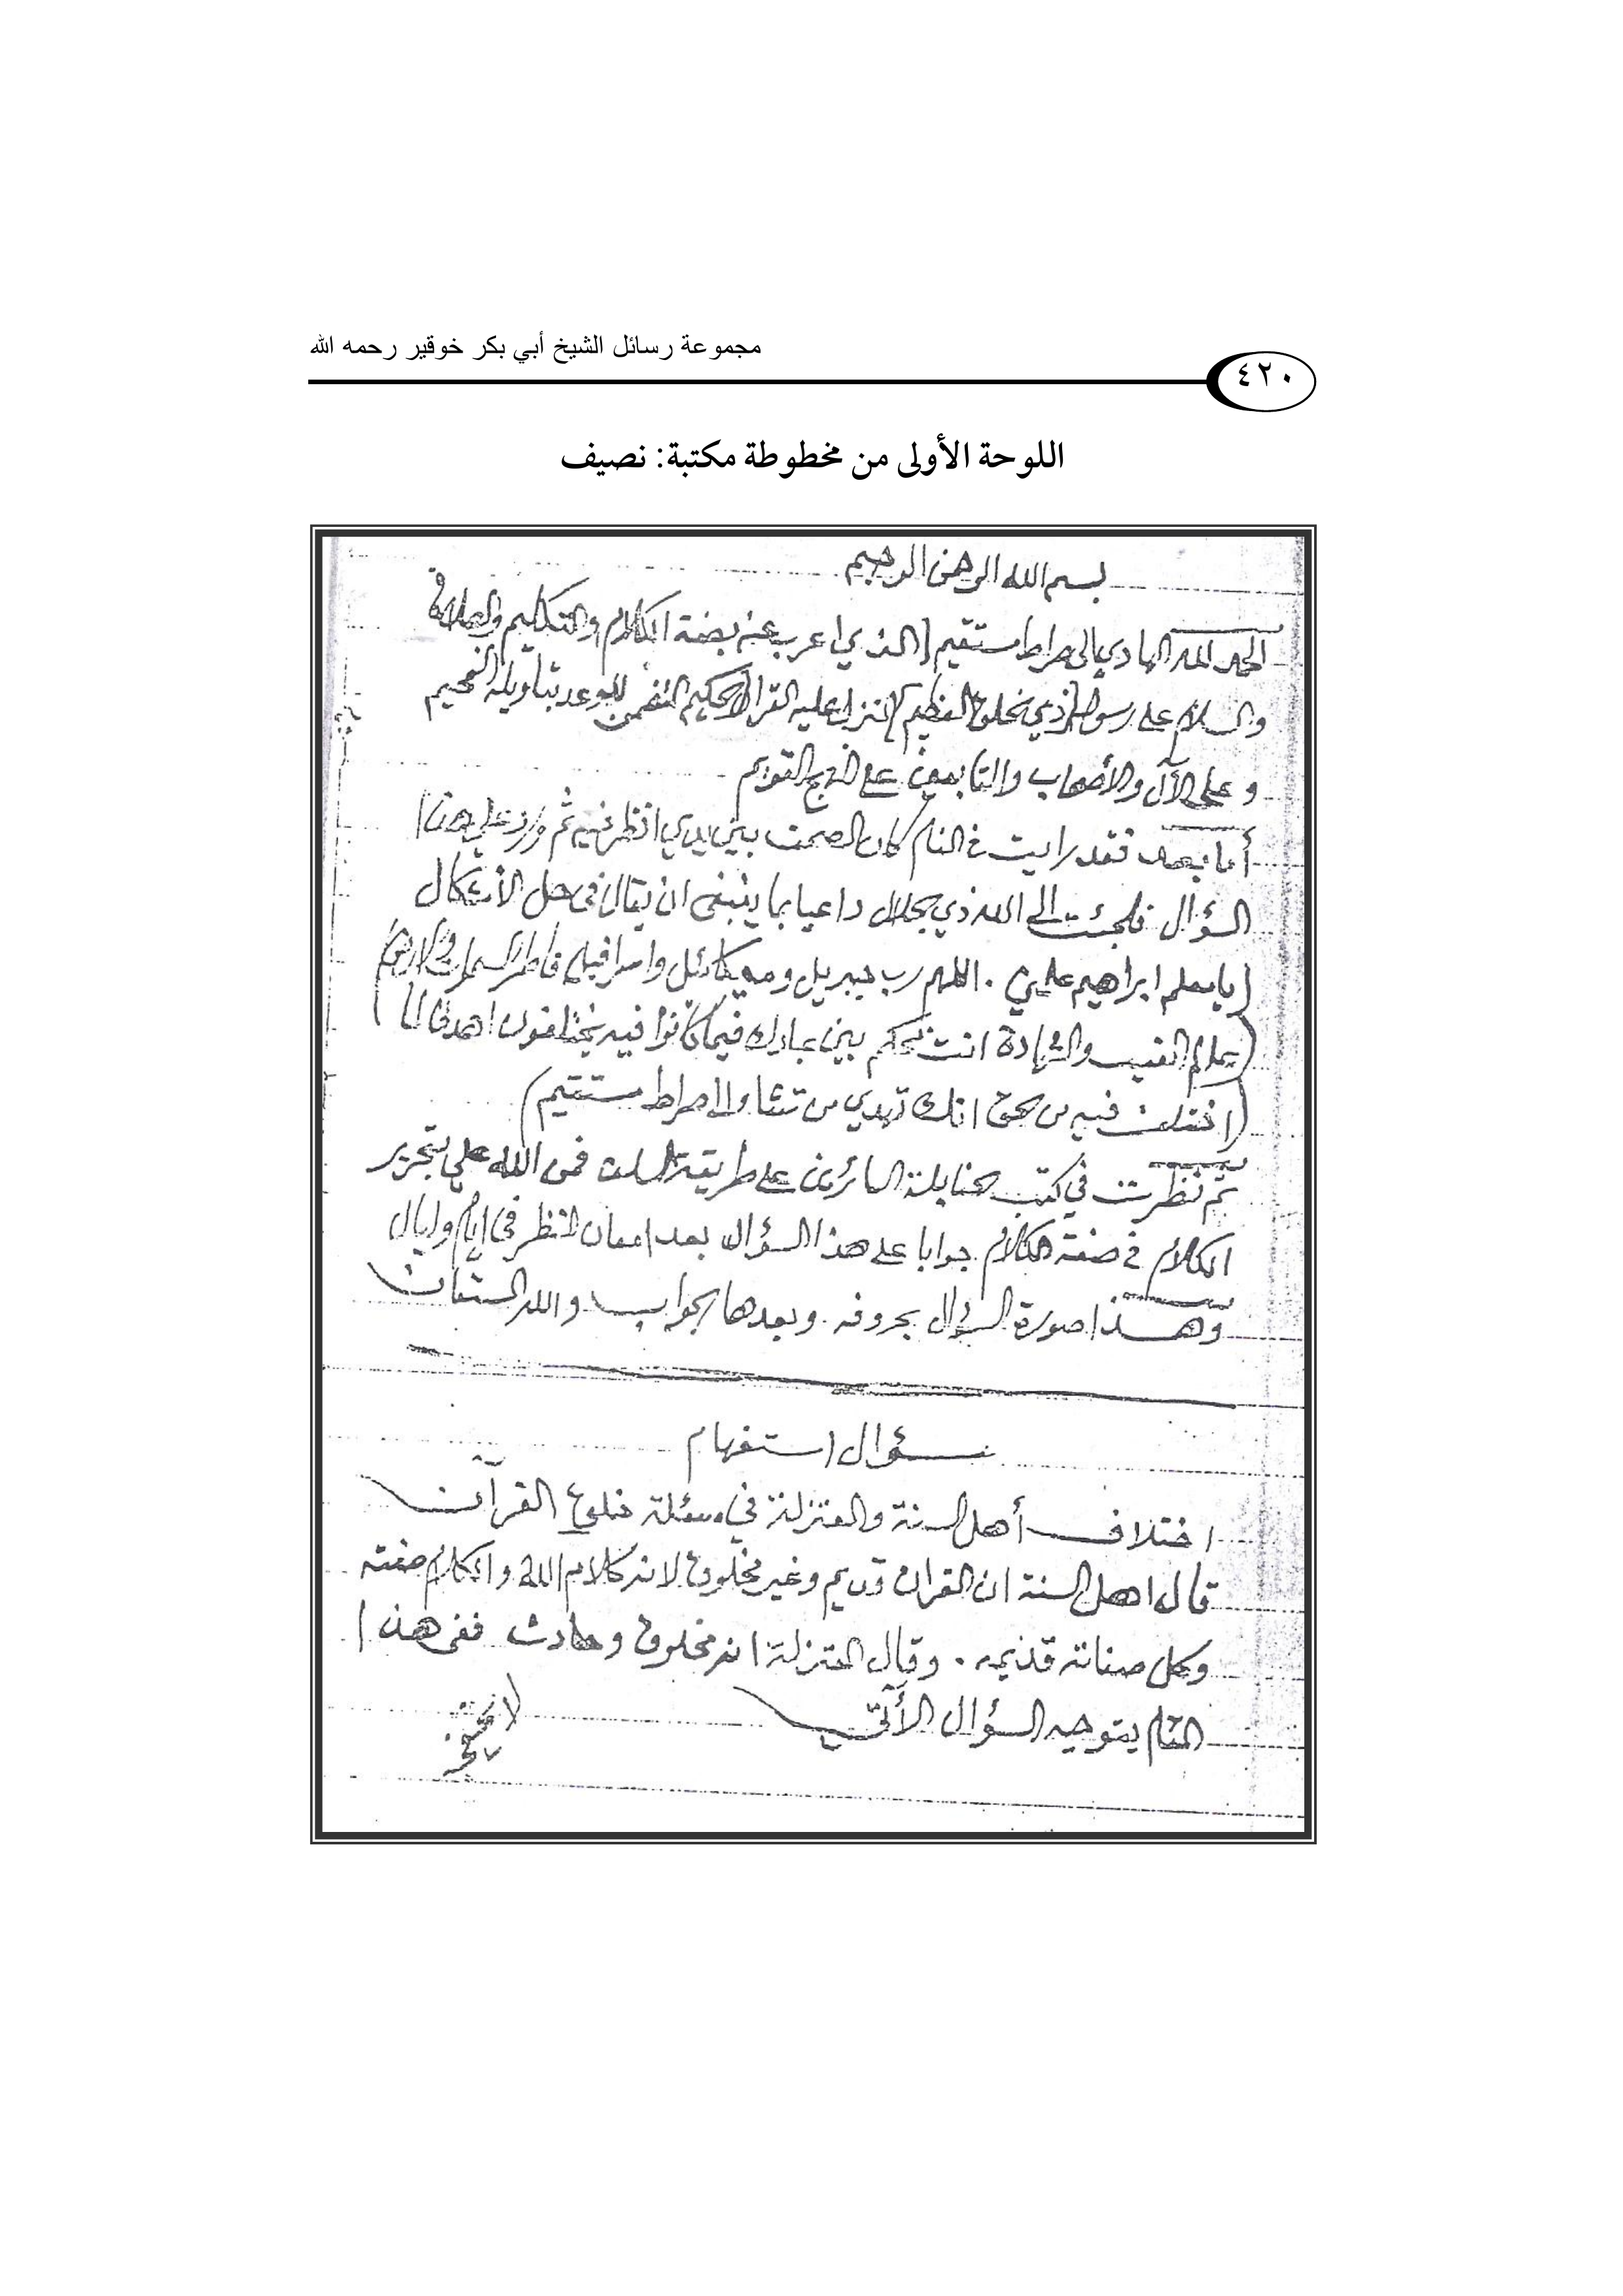 مجموعة رسائل الشيخ أبي بكر خوقير رحمه الله
٤٢٠
اللوحة الأولى من مخطوطة مكتبة: نصيف
بسم الله الرحمن الرحيم
الحمد لله الهادي الى صراط مستقيم الذي اعرب عنه بصفة الكلام والتكليم والصلاة
والسلام على رسوله ذي الخلق العظيم المنزل عليه القرآن الحكيم المتضمن للوعد بتأويله
وعلى الآل والأصحاب والتابعين على النهج القويم
أما بعد فقد رايت في المنام كان المصحف بين يدي انظر فيه ثم ورد علي هذا
السؤال فلجئت الى الله ذي الجلال داعيا بما ينبغي ان يقال في حل الأشكال
(يا معلم ابراهيم علمني . اللهم رب جبريل وميكائل واسرافيل فاطر السموات والارض)
(عالم الغيب والشهادة انت تحكم بين عبادك فيما كانوا فيه يختلفون اهدنا لما)
(اختلف فيه من الحق انك تهدي من تشاء الى صراط مستقيم)
ثم نظرت في كتب الحنابلة السائرين على طريقة السلف فمن الله علي بتحرير
الكلام في صفة الكلام جوابا على هذا السؤال بعد امعان النظر في ايام وليال
وهذا صورة السؤال بحروفه وبعدها الجواب والله المستعان
سؤال استفهام
اختلاف أهل السنة والمعتزلة في مسئلة خلق القرآن
قال اهل السنة ان القران قديم وغير مخلوق لانه كلام الله والكلام صفته
وكل صفاته قديمه . وقال المعتزلة انه مخلوق وحادث ففي هذا
المقام يتوجه السؤال الأتي
لا يخفى